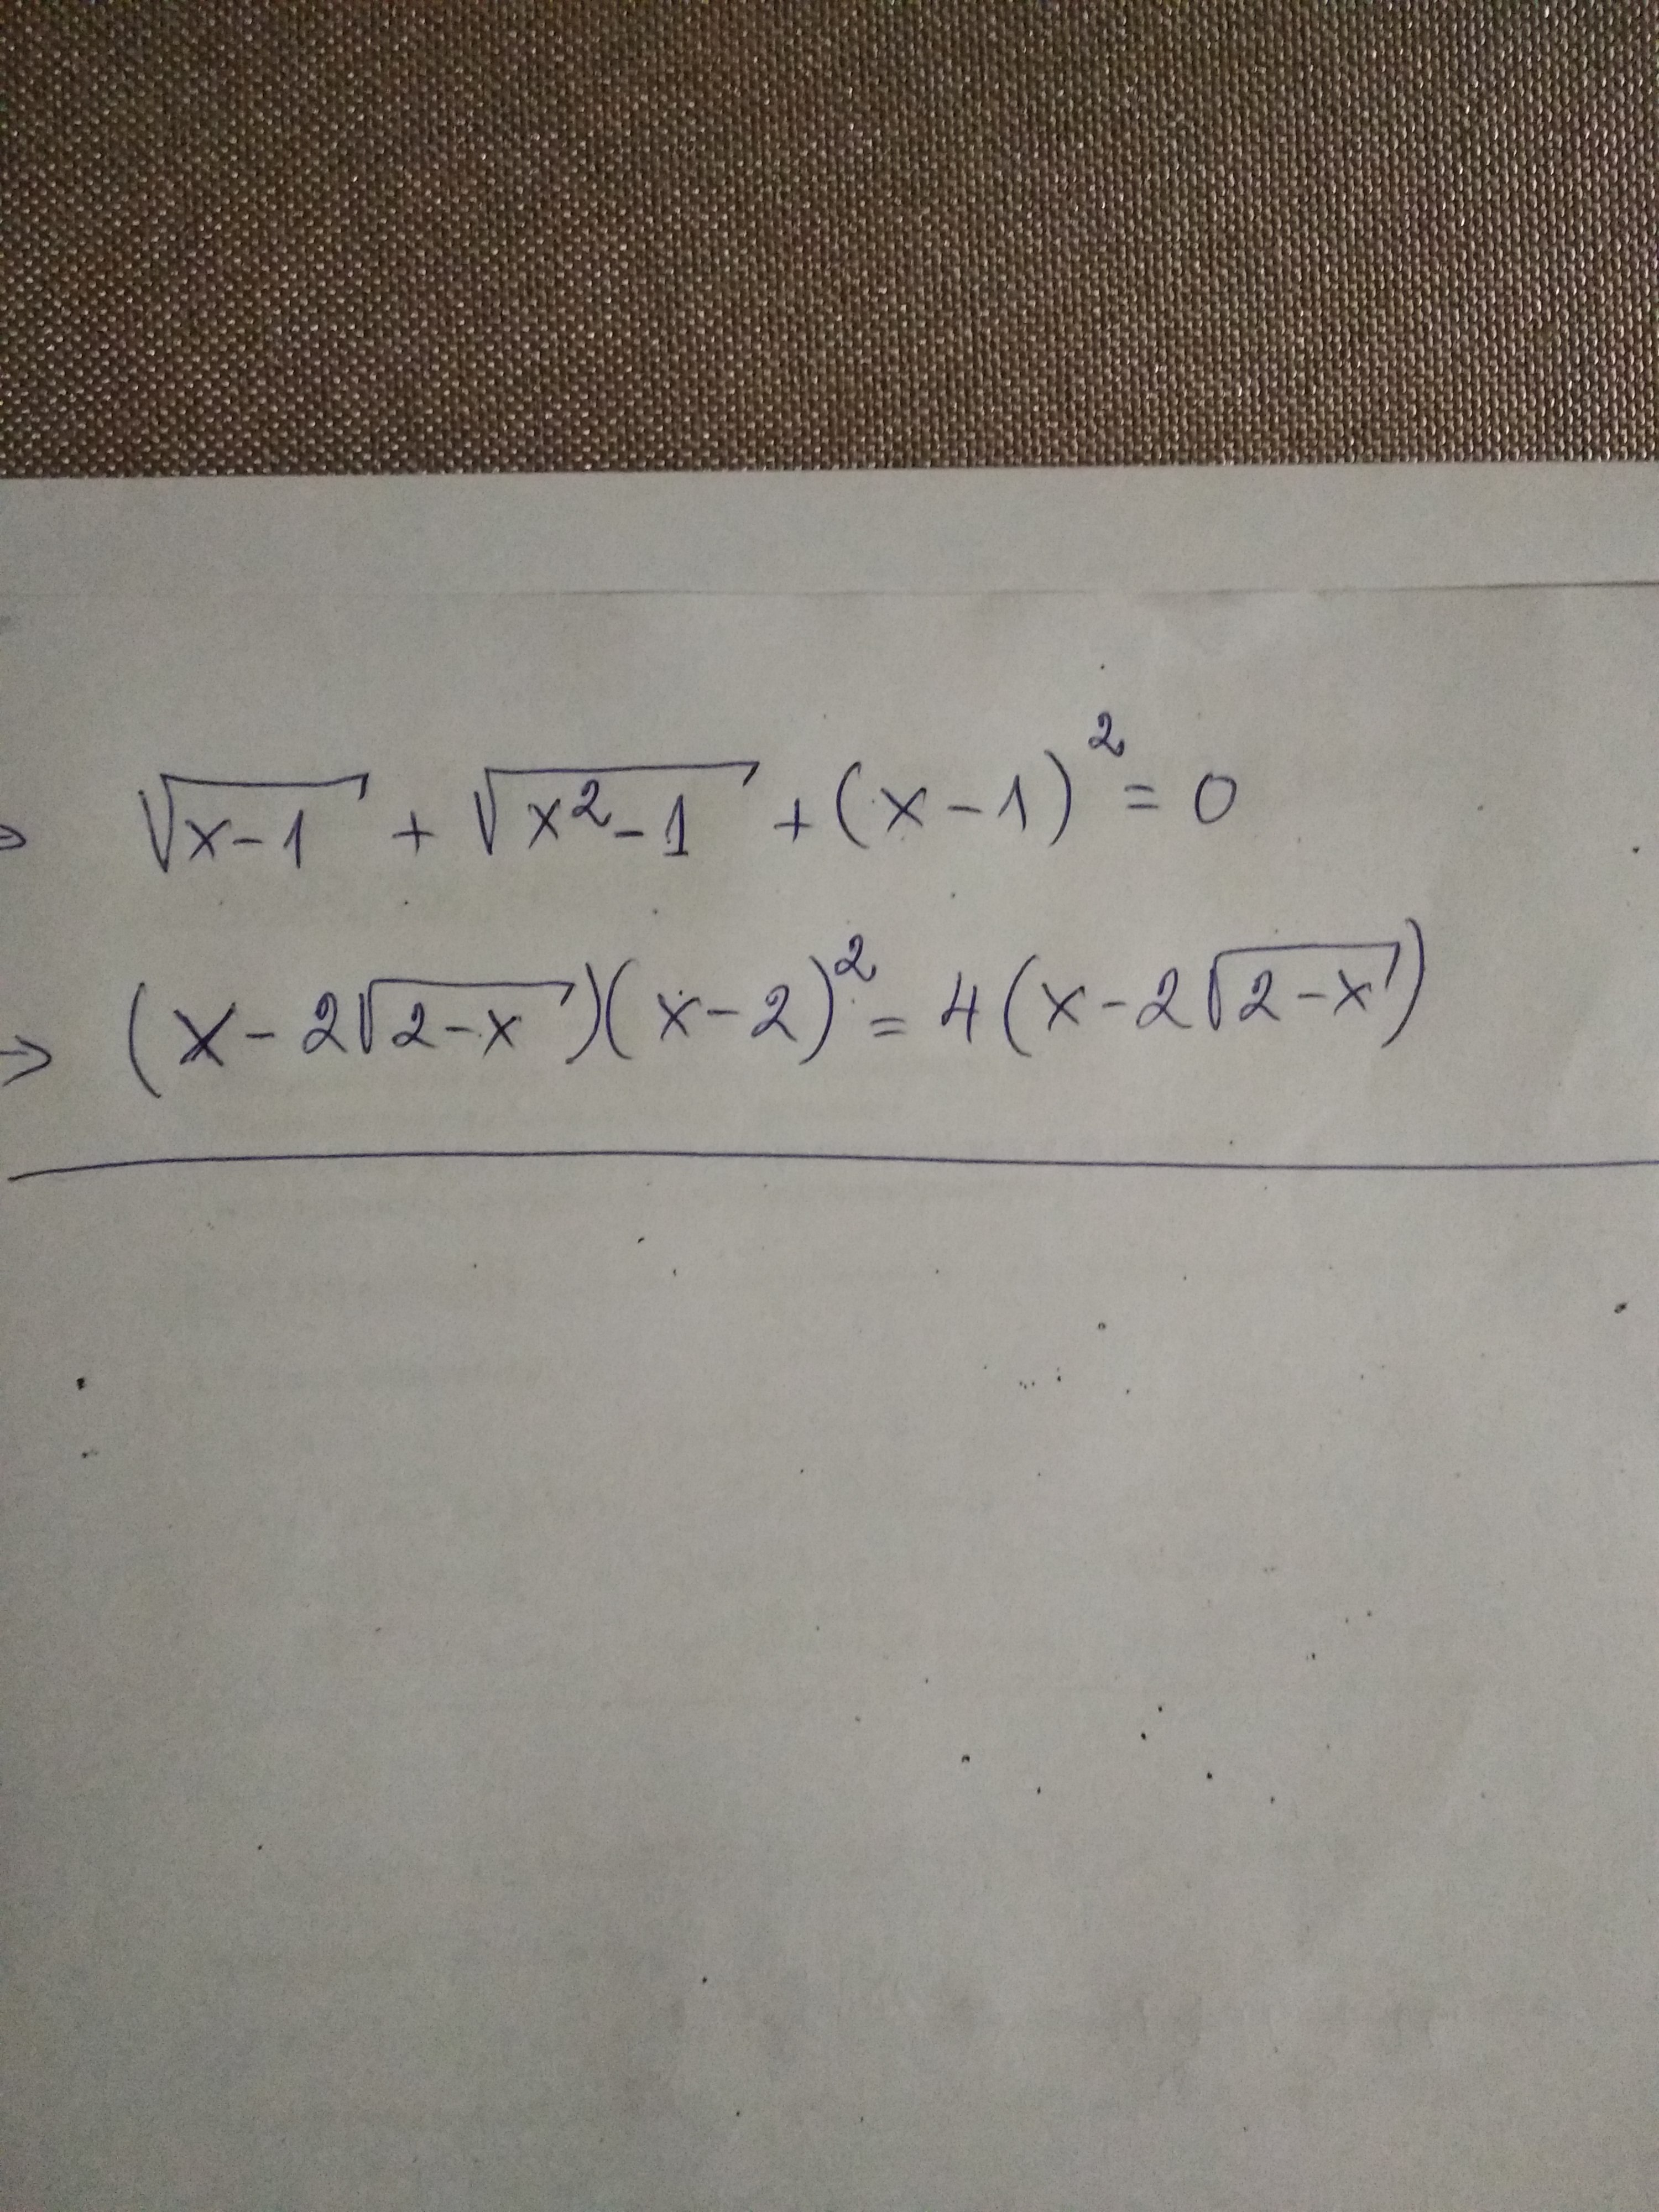 → √(x-1) + √(x²-1) + (x-1)² = 0
→ (x-2√(2-x))(x-2)² = 4(x-2√(2-x))